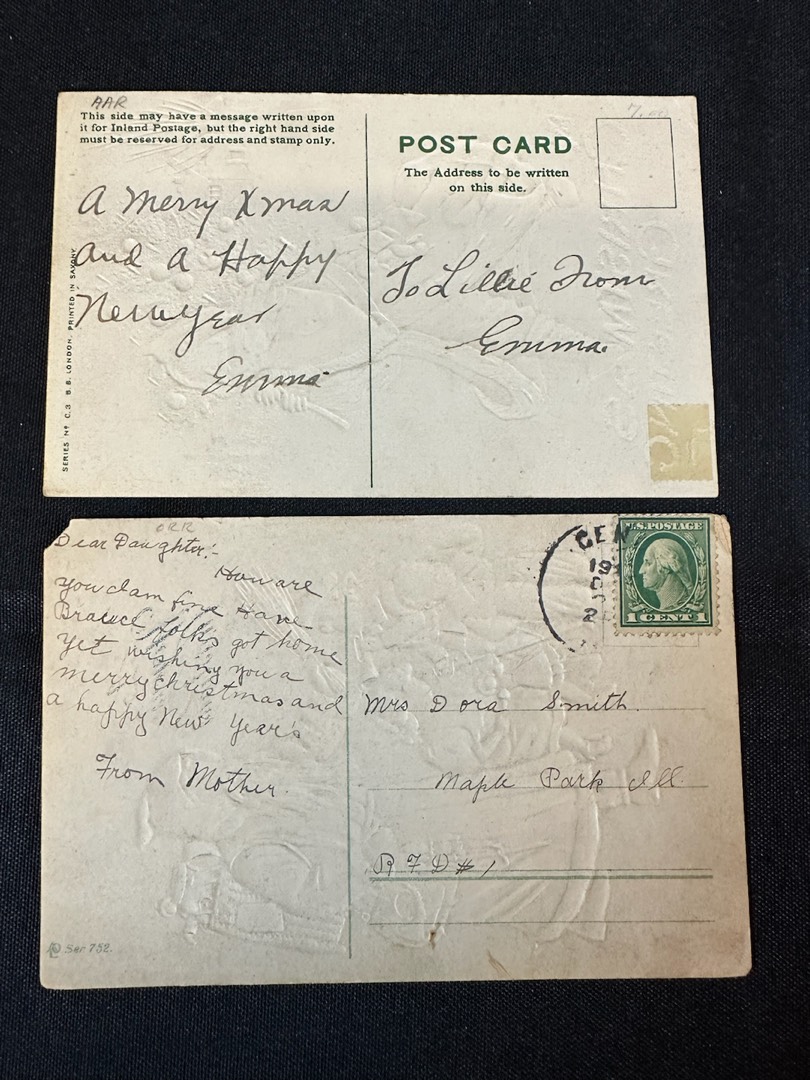 AAR
This side may have a message written upon
it for Inland Postage, but the right hand side
must be reserved for address and stamp only.
POST CARD
The Address to be written
on this side.
A Merry Xmas
and a Happy
New Year
Emma
To Lillie From
Emma.
SERIES Nº C.3 B.B. LONDON. PRINTED IN SAXONY
ORR
Dear Daughter!-
How are
you I am fine Have
folks got home
yet wishing you a
merry christmas and
a happy New Year's
From Mother.
GEN
19
2
U.S. POSTAGE
1 CENT
Mrs Dora Smith.
Maple Park Ill.
R F D # 1
Ser 752.